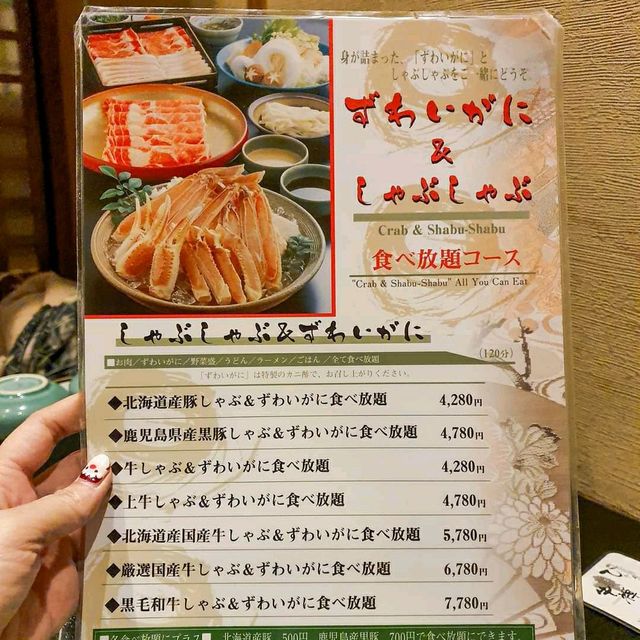 身が詰まった、「ずわいがに」と
しゃぶしゃぶをご一緒にどうぞ。
ずわいがに
&
しゃぶしゃぶ
Crab & Shabu-Shabu
食べ放題コース
"Crab & Shabu-Shabu" All You Can Eat
しゃぶしゃぶ&ずわいがに
■お肉／ずわいがに／野菜盛／うどん／ラーメン／ごはん／全て食べ放題
(120分)
「ずわいがに」は特製のカニ酢で、お召し上がりください。
◆北海道産豚しゃぶ&ずわいがに食べ放題 4,280円
◆鹿児島県産黒豚しゃぶ&ずわいがに食べ放題 4,780円
◆牛しゃぶ&ずわいがに食べ放題 4,280円
◆上牛しゃぶ&ずわいがに食べ放題 4,780円
◆北海道産国産牛しゃぶ&ずわいがに食べ放題 5,780円
◆厳選国産牛しゃぶ&ずわいがに食べ放題 6,780円
◆黒毛和牛しゃぶ&ずわいがに食べ放題 7,780円
■各食べ放題にプラス■ 北海道産豚 500円 鹿児島産黒豚 700円で食べ放題にできます。